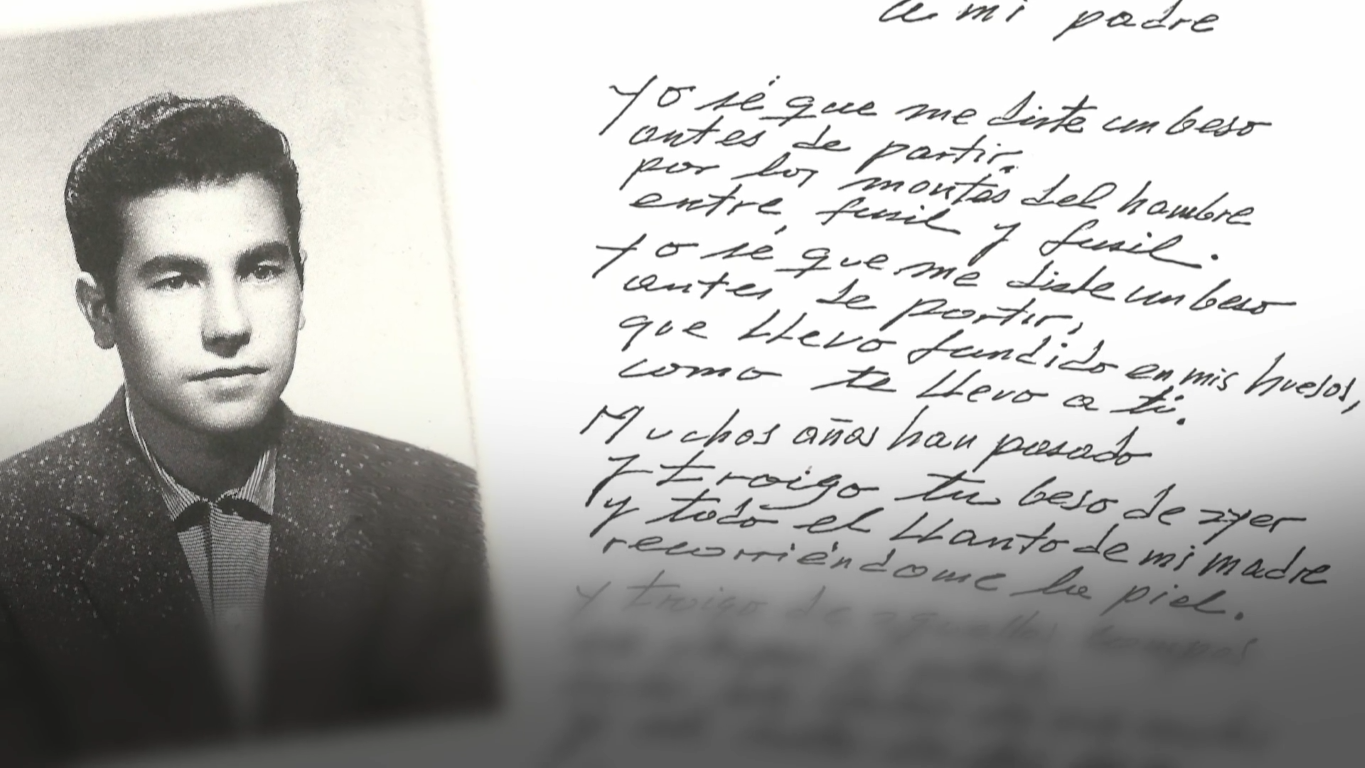 a mi padre
Yo sé que me diste un beso
antes de partir,
por los montes del hambre
entre fusil y fusil.
Yo sé que me diste un beso
antes de partir,
que llevo fundido en mis huesos,
como te llevo a ti.
Muchos años han pasado
y traigo tu beso de ayer
y todo el llanto de mi madre
recorriéndome la piel.
y traigo de aquellos campos